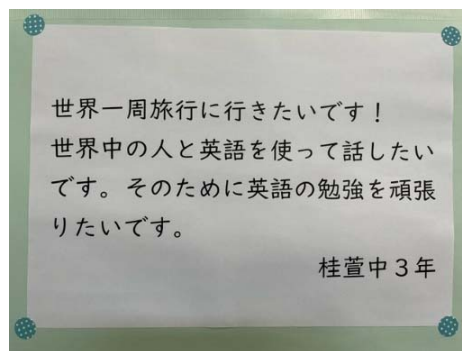 世界一周旅行に行きたいです！
世界中の人と英語を使って話したい
です。そのために英語の勉強を頑張
りたいです。
桂萱中３年